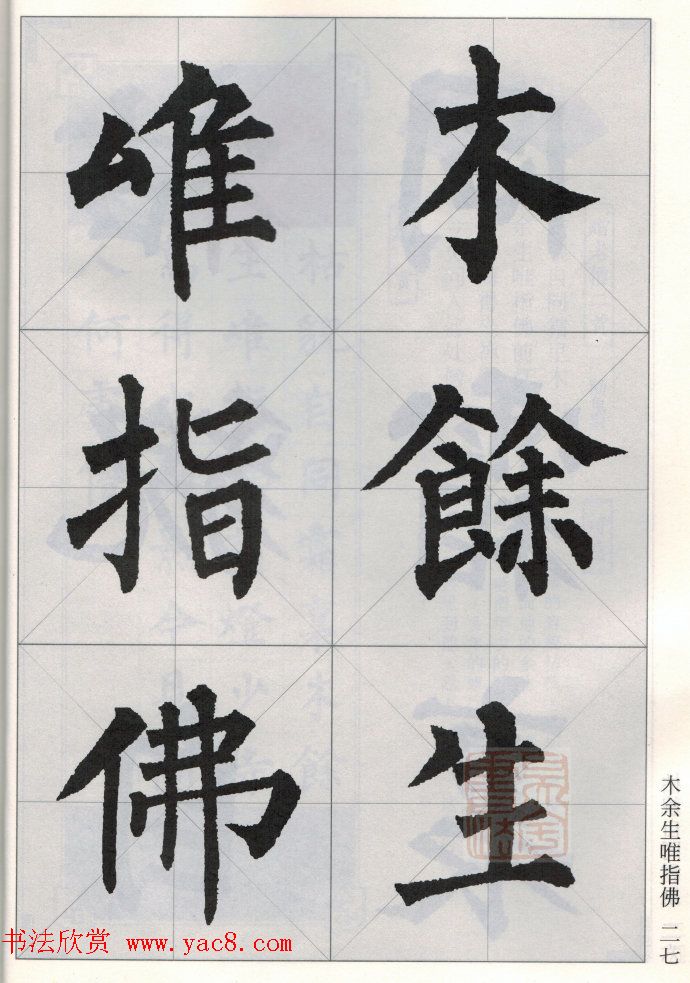 木餘生
唯指佛
木余生唯指佛 二七
书法欣赏 www.yac8.com